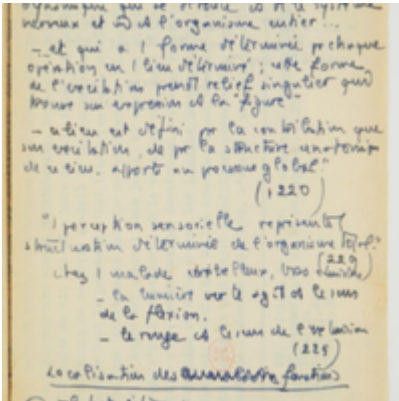 dynamique qui se déroule ds le système
nerveux et ds l'organisme entier...
- et qui a 1 forme déterminée pr chaque
opération en 1 lieu déterminé ; cette forme
de l'excitation prend relief singulier qui
trouve son expression ds la "figure"
- ce lieu est défini par la contribution que
son excitation, de par la structure anatomique
de ce lieu, apporte au processus global."
(220)
"1 perception sensorielle représente 1
structuration déterminée de l'organisme total."
(229)
chez 1 malade cérébelleux,
- la lumière vert le agit ds le sens
de la flexion.
- le rouge ds le sens de l'extension
(229)
Localisation des fonctions